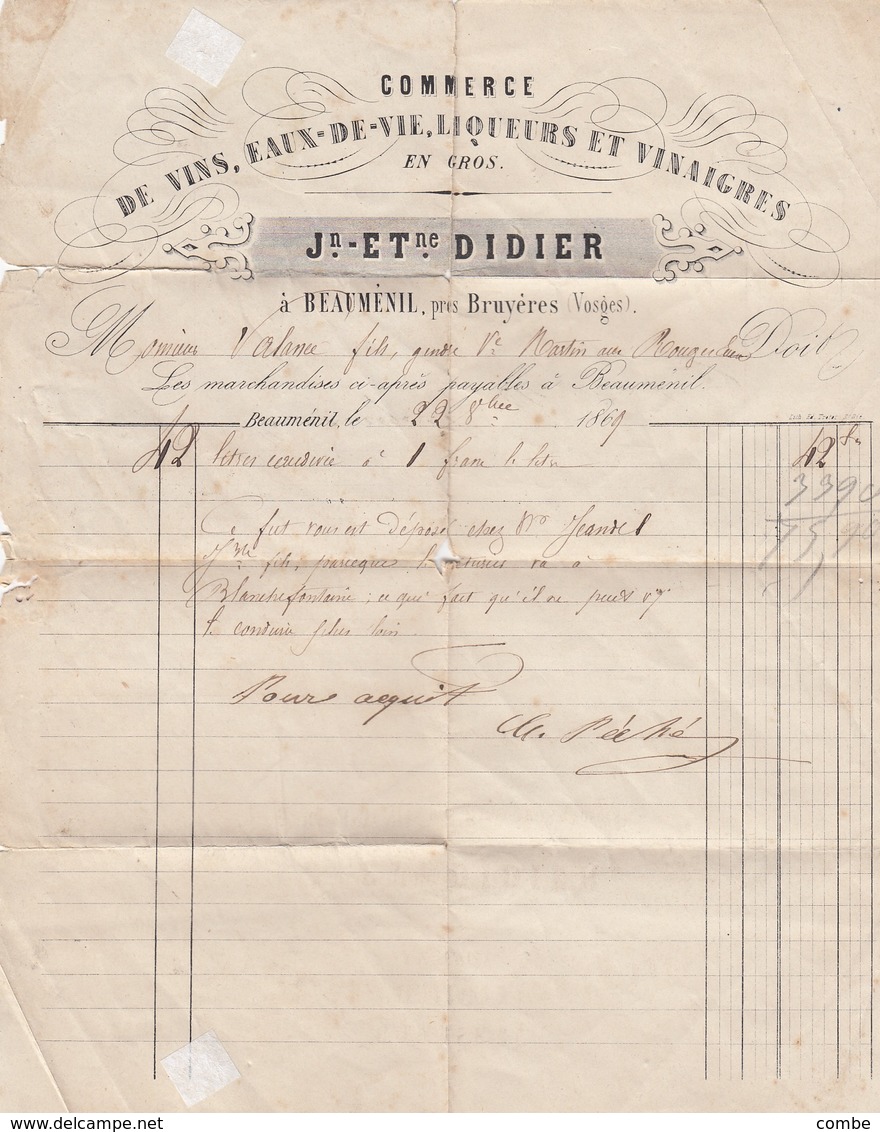 COMMERCE
DE VINS, EAUX-DE-VIE, LIQUEURS ET VINAIGRES
EN GROS.
Jn.-ETne. DIDIER
à BEAUMÉNIL, près Bruyéres (Vosges).
Monsieur Valance fils, gendre Ve Martin aux Rouges Eaux Doit
Les marchandises ci-après payables à Beauménil.
Beauménil, le 22 8bre 1869
42 litres à 1 franc le litre 42 fr
33 90
75 90
Ce fut vous est déposé chez Mr Jeandel
fils, parceque le va à
Blanchefontaine ; ce qui fait qu'il ne peut
conduire plus loin.
Pour acquit
Péché
delcampe.net
combe